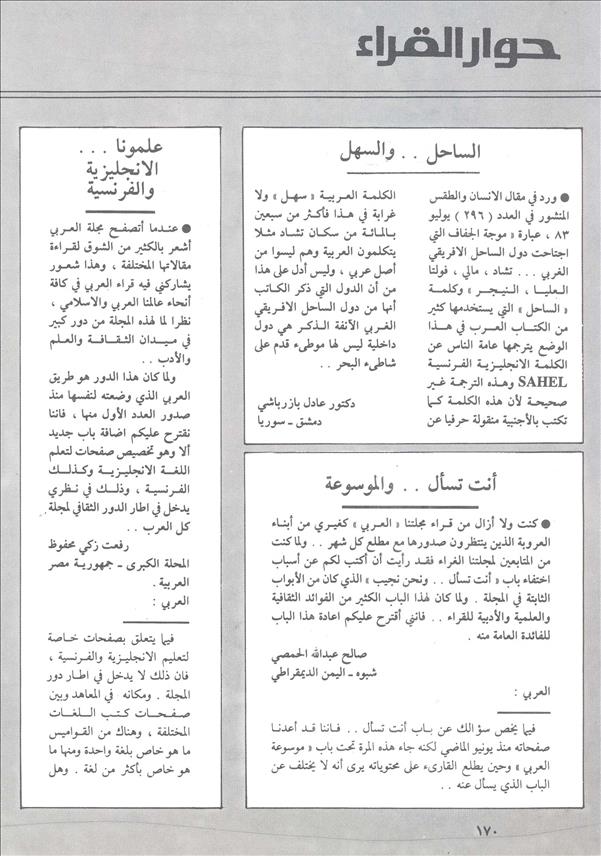 حوار القراء
الساحل . . والسهل
● ورد في مقال الانسان والطقس
المنشور في العدد ( ٢٩٦ ) يوليو
٨٣ ، عبارة « موجة الجفاف التي
اجتاحت دول الساحل الافريقي
الغربي . . . تشاد ، مالي ، فولتا
العليا ، النيجر » وكلمة
« الساحل » التي يستخدمها كثير
من الكتاب العرب في هذا
الوضع يترجمها عامة الناس عن
الكلمة الانجليزية الفرنسية
SAHEL وهذه الترجمة غير
صحيحة لأن هذه الكلمة كما
تكتب بالأجنبية منقولة حرفيا عن
الكلمة العربية « سهل » ولا
غرابة في هذا فأكثر من سبعين
بالمائة من سكان تشاد مثلا
يتكلمون العربية وهم ليسوا من
أصل عربي ، وليس أدل على هذا
من أن الدول التي ذكر الكاتب
أنها من دول الساحل الافريقي
الغربي الآنفة الذكر هي دول
داخلية ليس لها موطىء قدم على
شاطىء البحر . .
دكتور عادل بازرباشي
دمشق ـ سوريا
أنت تسأل . . والموسوعة
● كنت ولا أزال من قراء مجلتنا « العربي » كغيري من أبناء
العروبة الذين ينتظرون صدورها مع مطلع كل شهر . . ولما كنت
من المتابعين لمجلتنا الغراء فقد رأيت أن أكتب لكم عن أسباب
اختفاء باب « أنت تسأل . . ونحن نجيب » الذي كان من الأبواب
الثابتة في المجلة . ولما كان لهذا الباب الكثير من الفوائد الثقافية
والعلمية والأدبية للقراء . . فانني أقترح عليكم اعادة هذا الباب
للفائدة العامة منه .
صالح عبدالله الحمصي
شبوه ـ اليمن الديمقراطي
العربي :
فيما يخص سؤالك عن باب أنت تسأل . . فاننا قد أعدنا
صفحاته منذ يونيو الماضي لكنه جاء هذه المرة تحت باب « موسوعة
العربي » وحين يطلع القارىء على محتوياته يرى أنه لا يختلف عن
الباب الذي يسأل عنه . .
علمونا . . .
الانجليزية
والفرنسية
● عندما أتصفح مجلة العربي
أشعر بالكثير من الشوق لقراءة
مقالاتها المختلفة ، وهذا شعور
يشاركني فيه قراء العربي في كافة
أنحاء عالمنا العربي والاسلامي ،
نظرا لما لهذه المجلة من دور كبير
في ميدان الثقافة والعلم
والأدب . .
ولما كان هذا الدور هو طريق
العربي الذي وضعته لنفسها منذ
صدور العدد الأول منها ، فاننا
نقترح عليكم اضافة باب جديد
ألا وهو تخصيص صفحات لتعلم
اللغة الانجليزية وكذلك
الفرنسية ، وذلك في نظري
يدخل في اطار الدور الثقافي لمجلة
كل العرب . .
رفعت زكي محفوظ
المحلة الكبرى ـ جمهورية مصر
العربية .
العربي :
فيما يتعلق بصفحات خاصة
لتعليم الانجليزية والفرنسية ،
فان ذلك لا يدخل في اطار دور
المجلة . ومكانه في المعاهد وبين
صفحات كتب اللغات
المختلفة ، وهناك من القواميس
ما هو خاص بلغة واحدة ومنها ما
هو خاص بأكثر من لغة . وهل
١٧٠